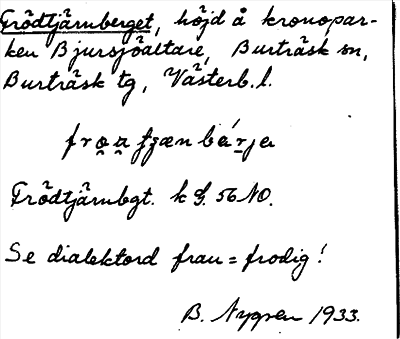 Frödtjärnberget, höjd å kronopar-
ken Bjursjöåltare, Burträsk sn,
Burträsk tg, Västerb.l.
Frödtjärnbgt. k G. 56 NO.
Se dialektord frau = frodig!
B. Nygren 1933.